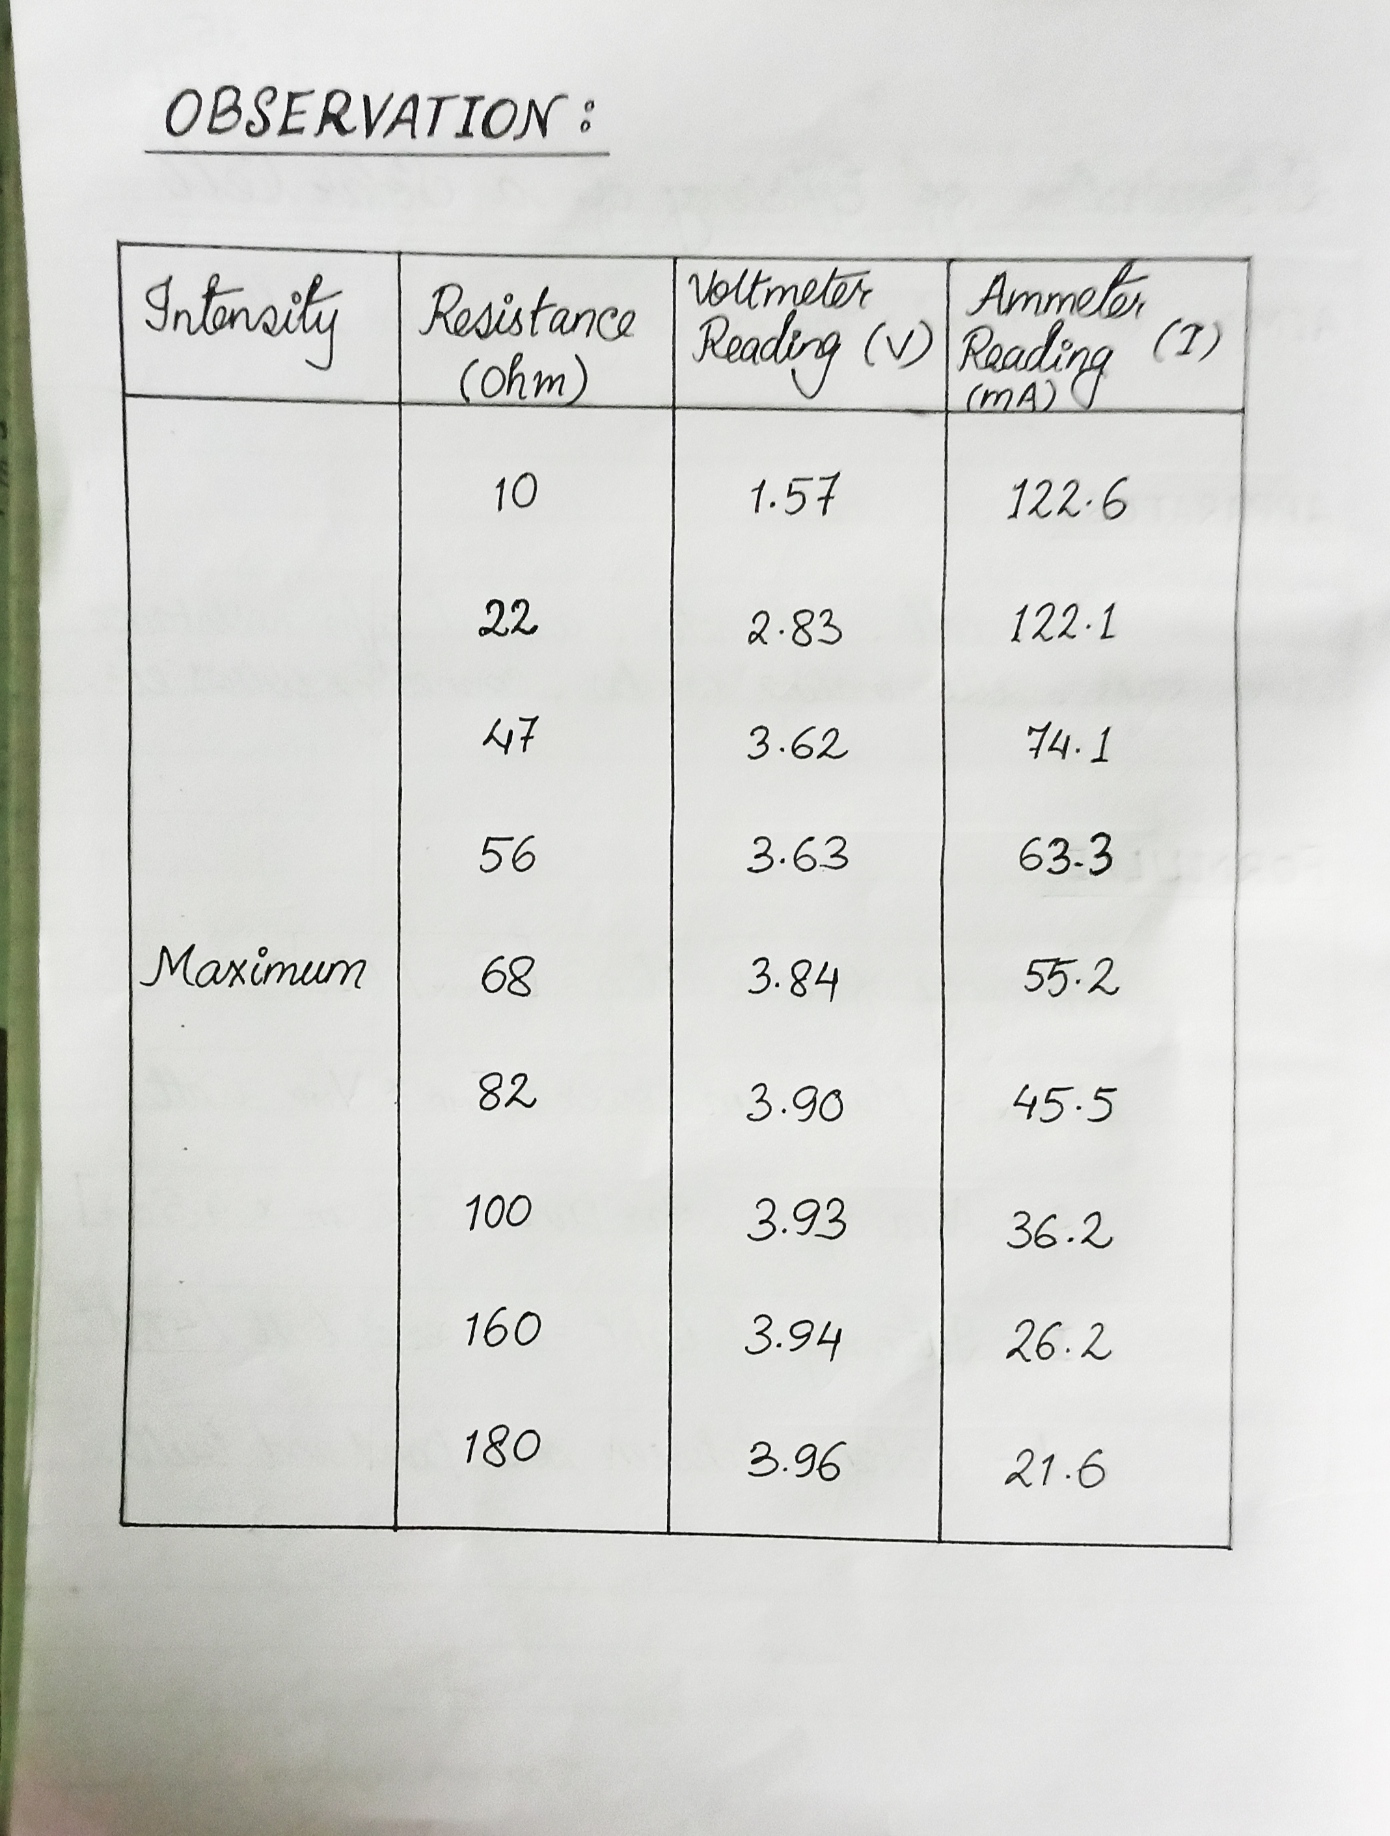 OBSERVATION:
Intensity
Resistance
(Ohm)
Voltmeter
Reading (V)
Ammeter
Reading (I)
(mA)
10 1.57 122.6
22 2.83 122.1
47 3.62 74.1
56 3.63 63.3
Maximum 68 3.84 55.2
82 3.90 45.5
100 3.93 36.2
160 3.94 26.2
180 3.96 21.6